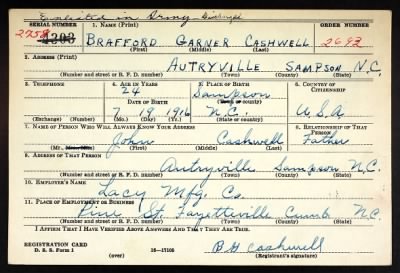 Enlisted in Army
SERIAL NUMBER 1. NAME (Print) ORDER NUMBER
2258 1203 BRAFFORD GARNER CASHWELL 2692
(First) (Middle) (Last)
2. ADDRESS (Print)
AUTRYVILLE SAMPSON N.C.
(Number and street or R. F. D. number) (Town) (County) (State)
3. TELEPHONE 4. AGE IN YEARS 5. PLACE OF BIRTH 6. COUNTRY OF CITIZENSHIP
24 Sampson
DATE OF BIRTH (Town or county)
7 19 1916 N.C. U.S.A.
(Exchange) (Number) (Mo.) (Day) (Yr.) (State or country)
7. NAME OF PERSON WHO WILL ALWAYS KNOW YOUR ADDRESS 8. RELATIONSHIP OF THAT PERSON
John Cashwell Father
(Mr., Mrs., Miss) (First) (Middle) (Last)
9. ADDRESS OF THAT PERSON
Autryville Sampson N.C.
(Number and street or R. F. D. number) (Town) (County) (State)
10. EMPLOYER'S NAME
Lacy Mfg. Co.
11. PLACE OF EMPLOYMENT OR BUSINESS
Pine St. Fayetteville Cumb N.C.
(Number and street or R. F. D. number) (Town) (County) (State)
I AFFIRM THAT I HAVE VERIFIED ABOVE ANSWERS AND THAT THEY ARE TRUE.
REGISTRATION CARD
D. S. S. Form 1 (over) 16—17105 B G Cashwell
(Registrant's signature)